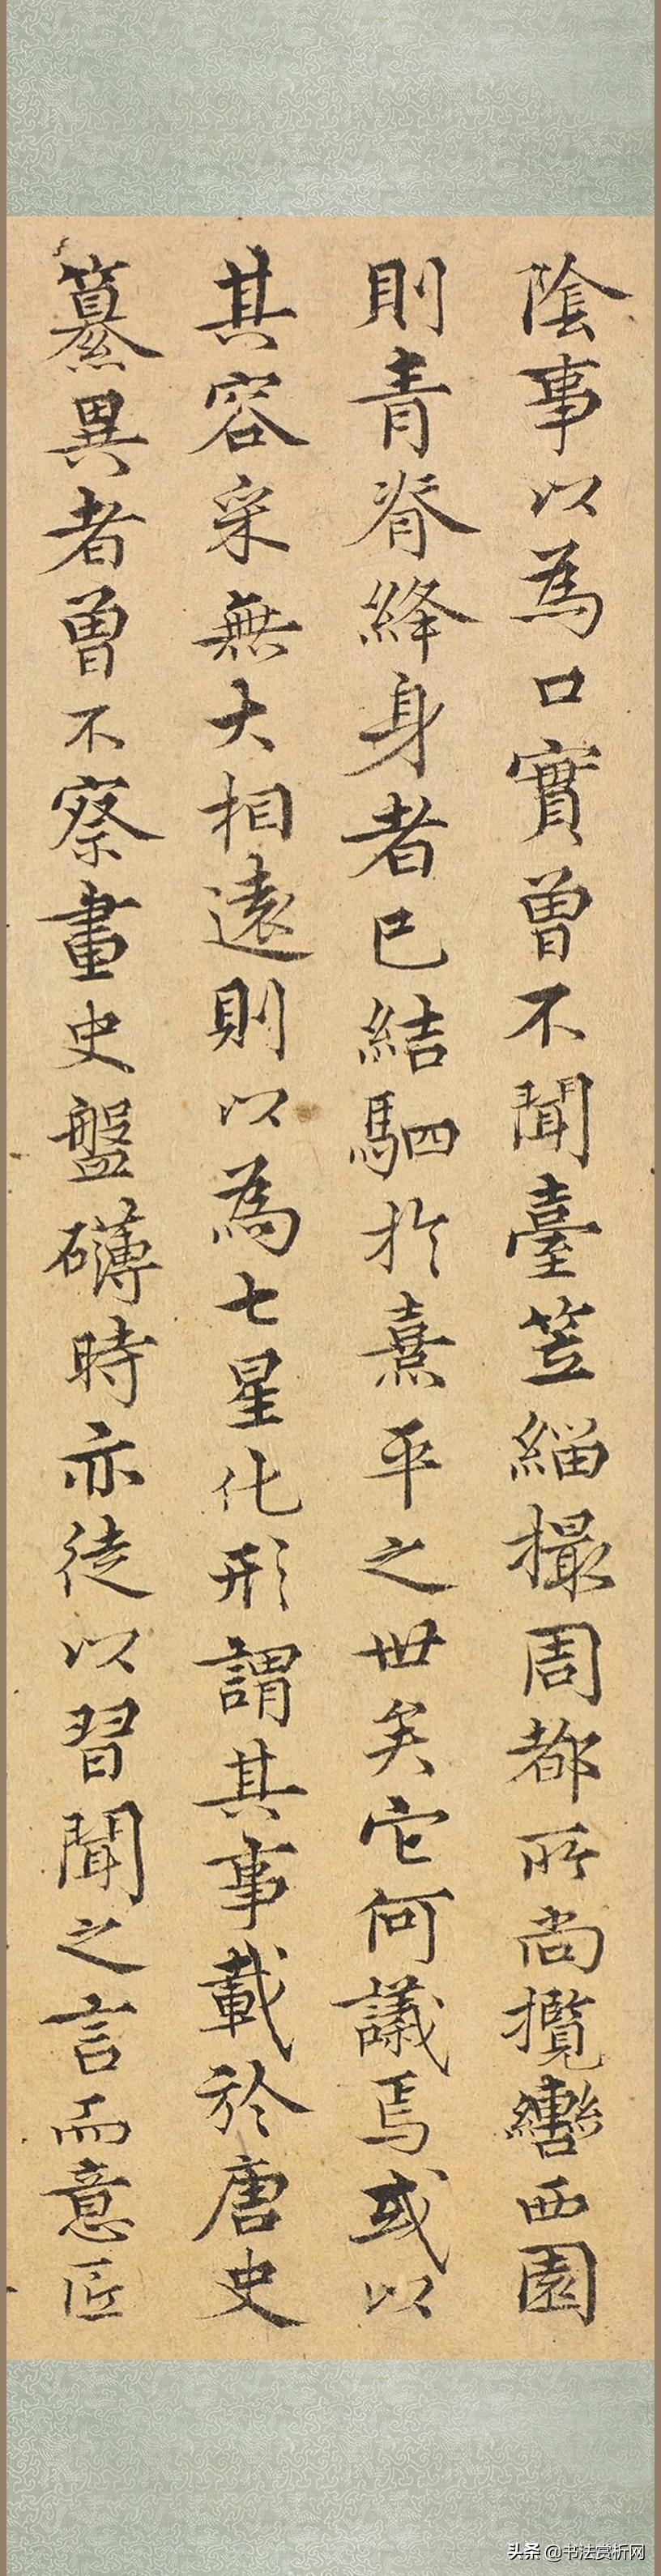 陰事以為口實曽不聞臺笠緇撮周都所尚攬轡西園
則青脊絳身者已結駟於熹平之世矣它何議焉或以
其容采無大相遠則以為七星化形謂其事載於唐史
纂異者曽不察畫史盤礴時亦徒以習聞之言而意匠
头条 @书法赏析网